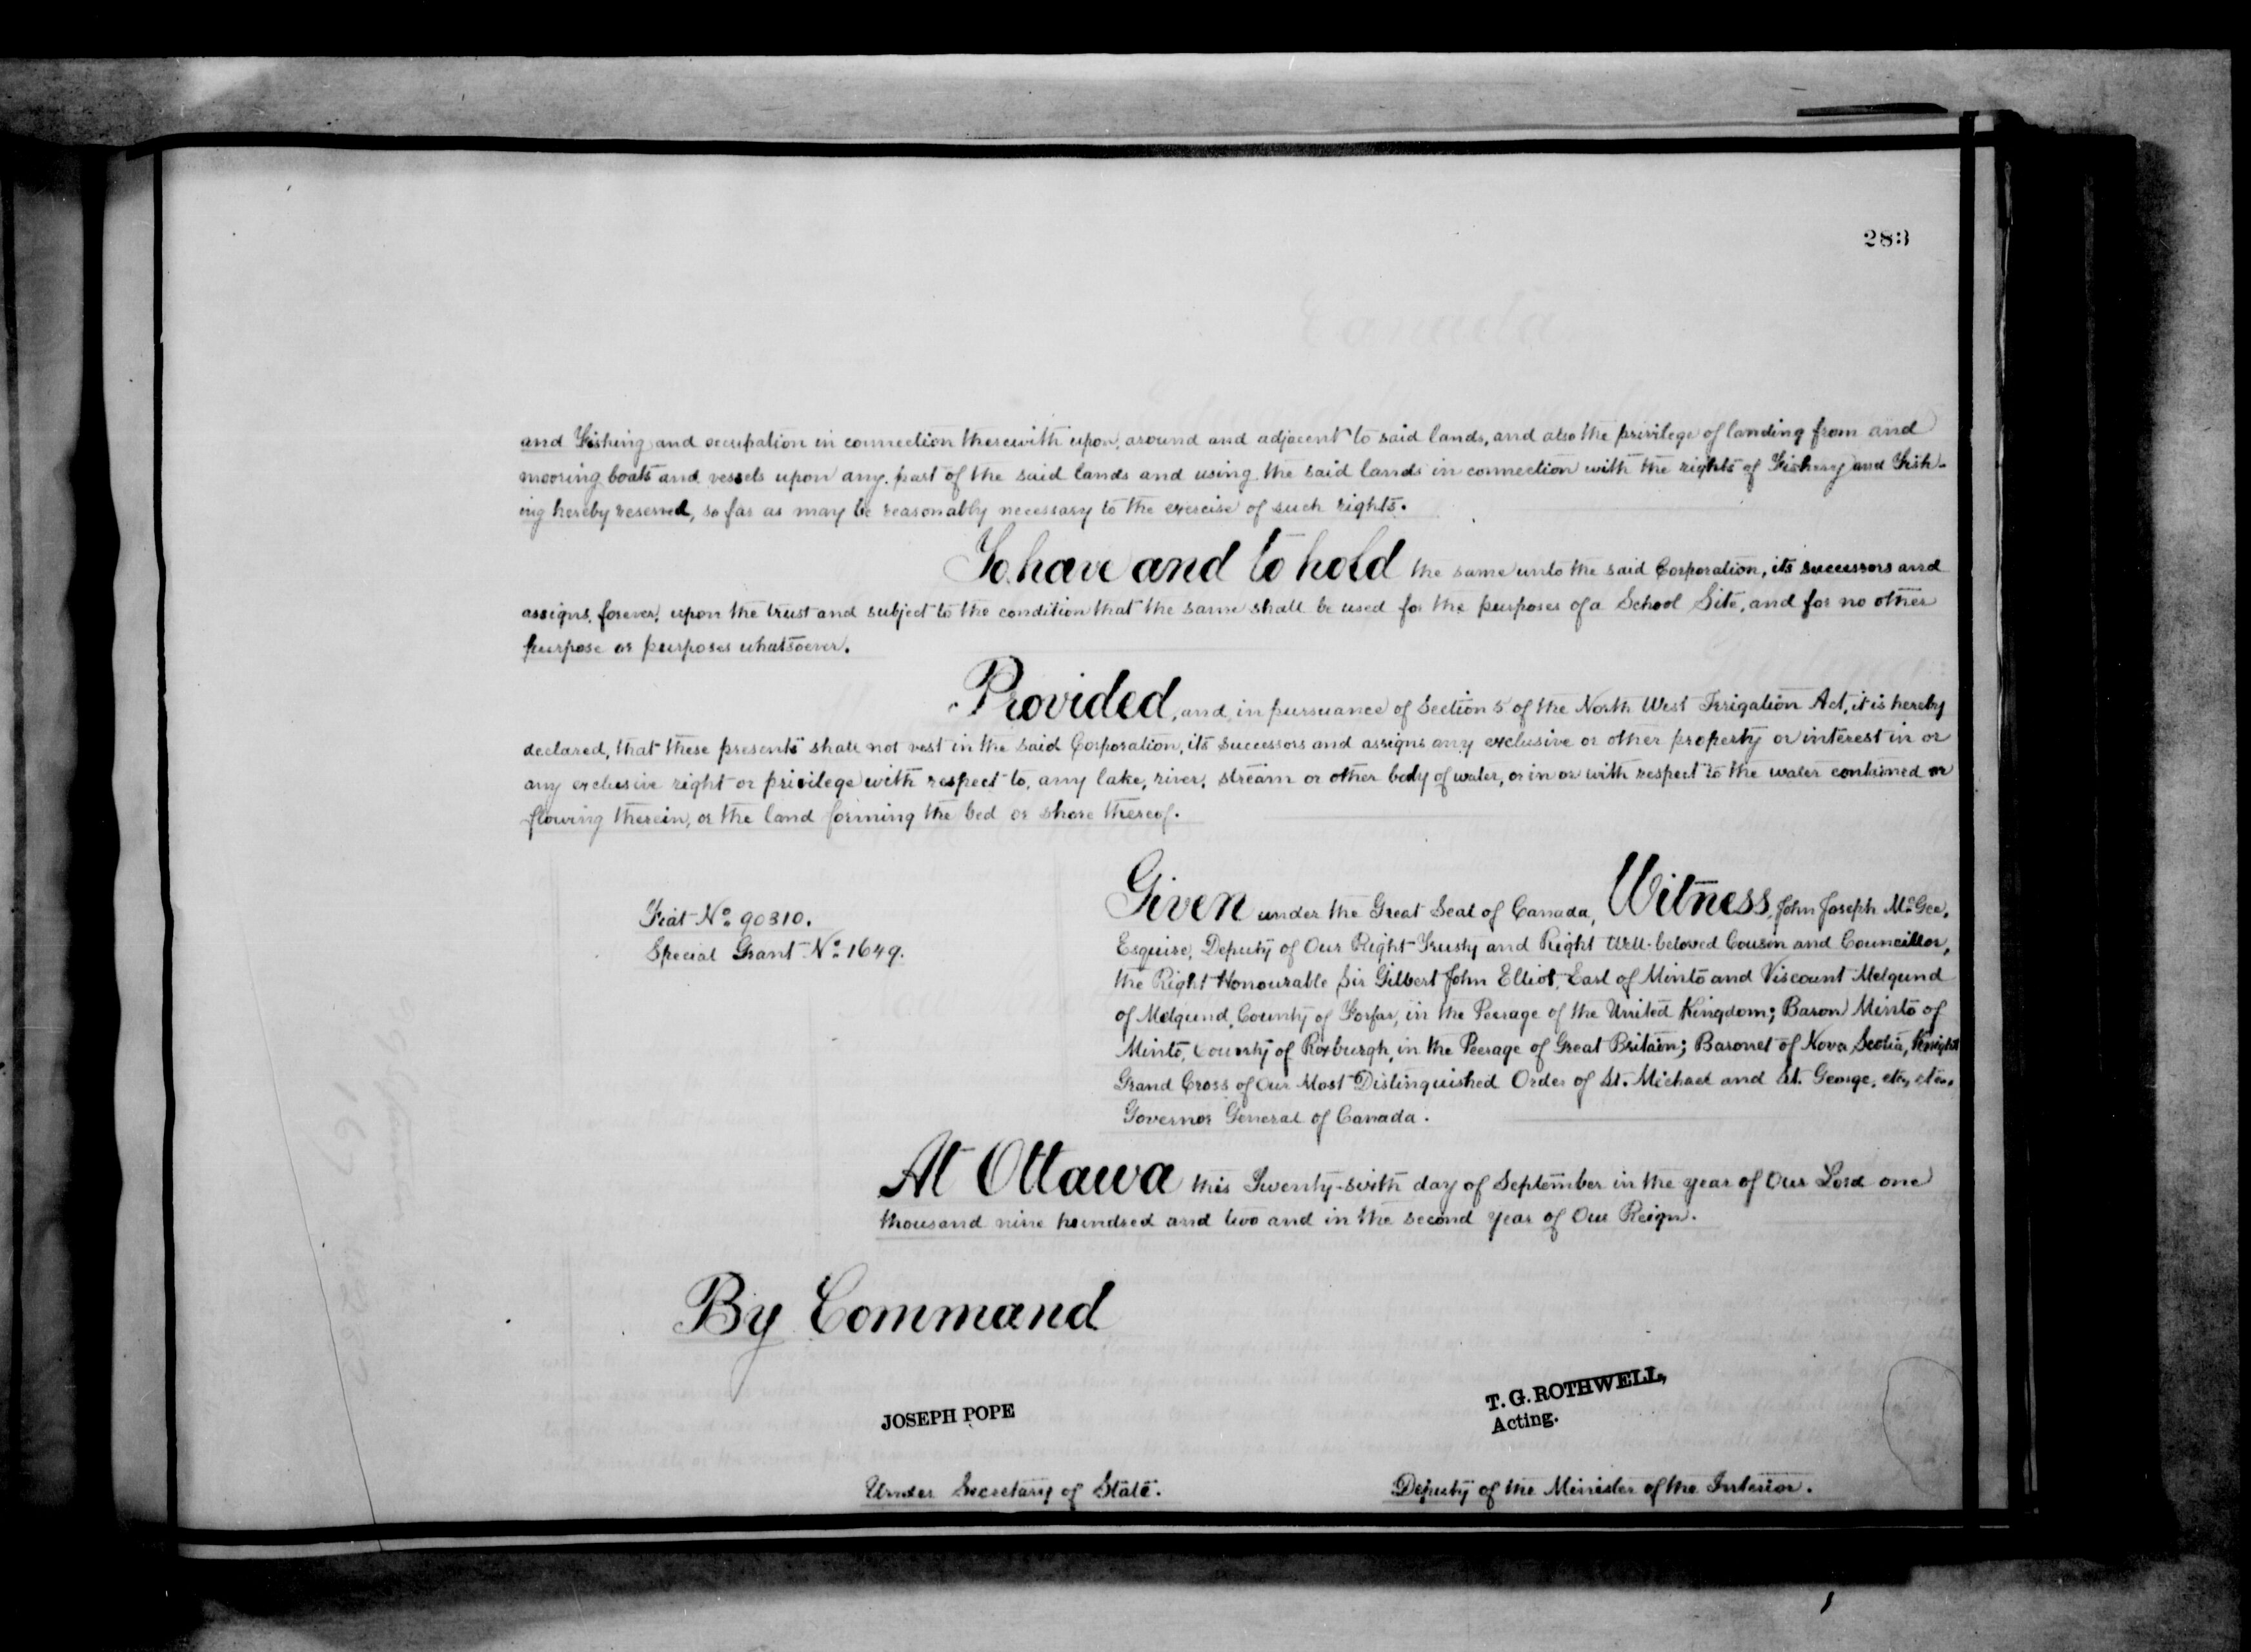 283
and Fishing and occupation in connection therewith upon, around and adjacent to said lands, and also the privilege of landing from and
mooring boats and vessels upon any part of the said lands and using the said lands in connection with the rights of Fishery and Fish-
ing hereby reserved, so far as may be reasonably necessary to the exercise of such rights.
To have and to hold the same unto the said Corporation, its successors and
assigns, forever, upon the trust and subject to the condition that the same shall be used for the purposes of a School Site, and for no other
purpose or purposes whatsoever.
Provided, and in pursuance of Section 5 of the North West Irrigation Act, it is hereby
declared, that these presents shall not vest in the said Corporation, its successors and assigns any exclusive or other property or interest in or
any exclusive right or privilege with respect to, any lake, river, stream or other body of water, or in or with respect to the water contained or
flowing therein, or the land forming the bed or shore thereof.
Fiat No. 90310.
Special Grant No. 1649.
Given under the Great Seal of Canada, Witness, John Joseph McGee,
Esquire, Deputy of Our Right Trusty and Right Well-beloved Cousin and Councillor,
the Right Honourable Sir Gilbert John Elliot, Earl of Minto and Viscount Melgund
of Melgund, County of Forfar, in the Peerage of the United Kingdom; Baron Minto of
Minto, County of Roxburgh, in the Peerage of Great Britain; Baronet of Nova Scotia, Knight
Grand Cross of Our Most Distinguished Order of St. Michael and St. George, etc., etc.,
Governor General of Canada.
At Ottawa this Twenty-sixth day of September in the year of Our Lord one
thousand nine hundred and two and in the second year of Our Reign.
By Command
JOSEPH POPE
Under Secretary of State.
T. G. ROTHWELL,
Acting.
Deputy of the Minister of the Interior.